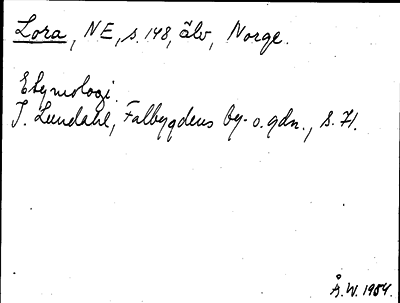 Lora, NE, s. 148, älv, Norge.
Etymologi.
I. Lundahl, Falbygdens by- o. gdn., s. 71.
Å.W. 1954.